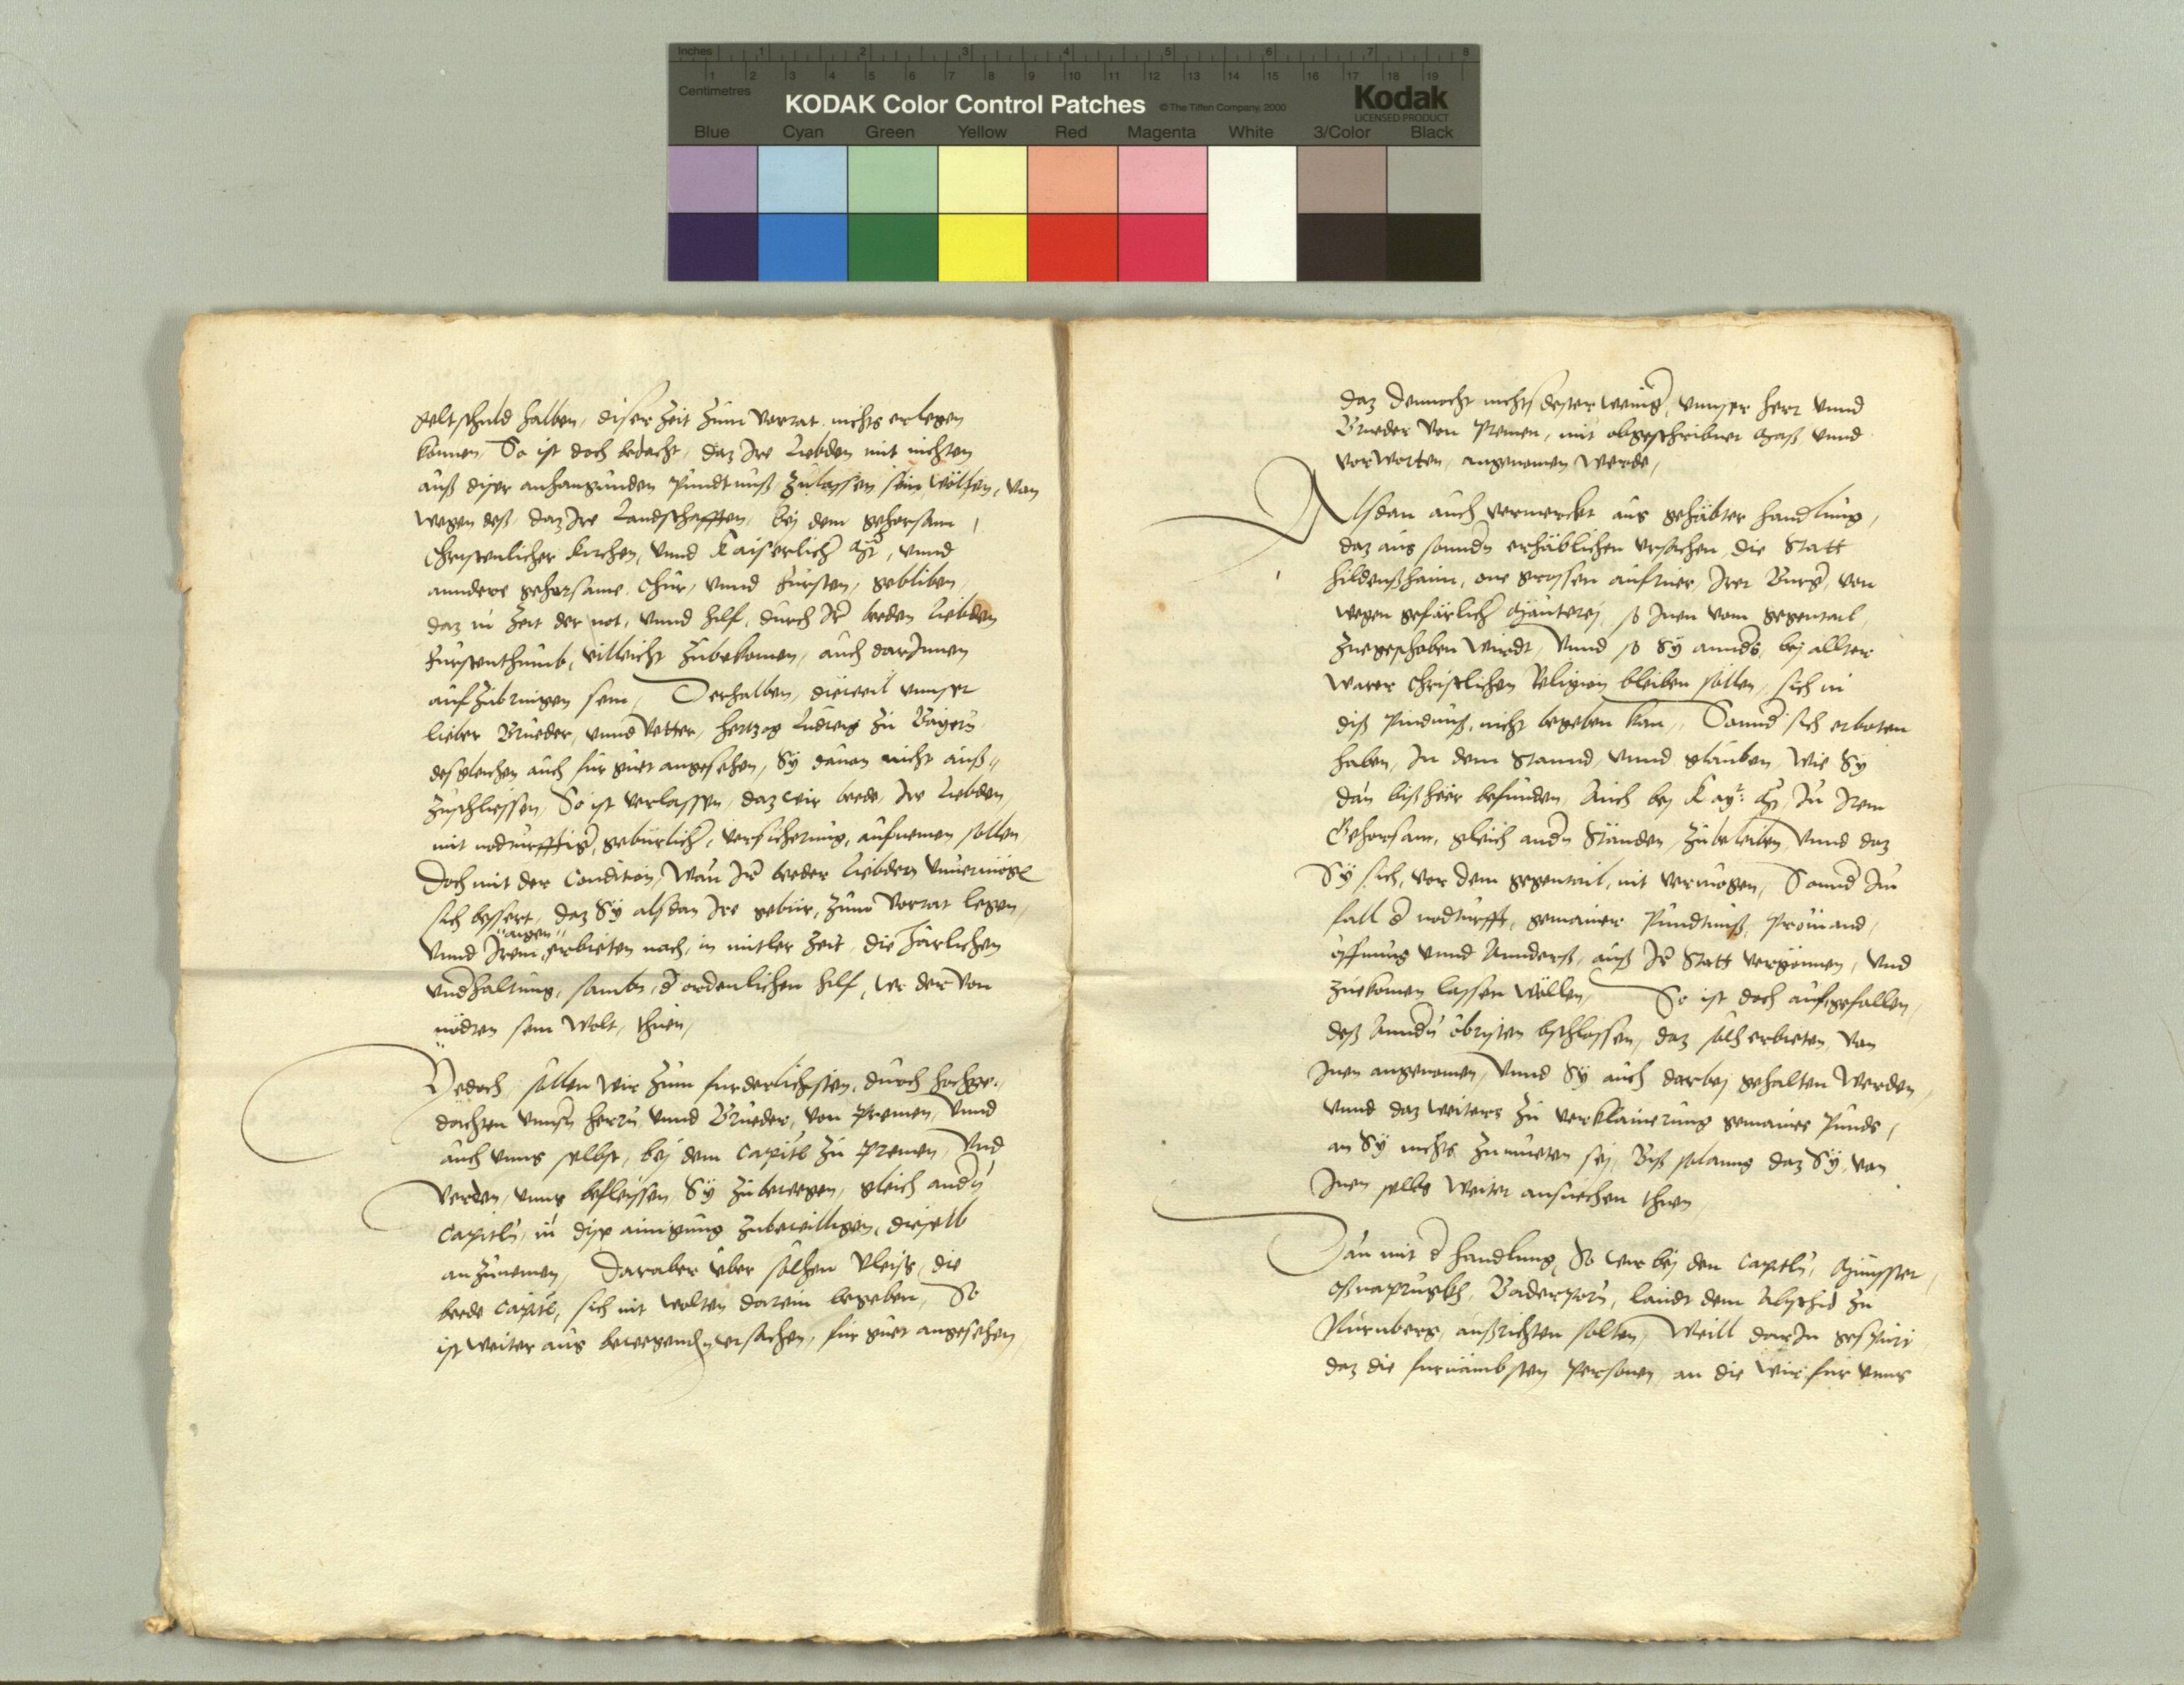 Inches 1 2 3 4 5 6 7 8
1 2 3 4 5 6 7 8 9 10 11 12 13 14 15 16 17 18 19
Centimetres
KODAK Color Control Patches © The Tiffen Company, 2000 Kodak
LICENSED PRODUCT
Blue Cyan Green Yellow Red Magenta White 3/Color Black
geltschuld halben, diser Zeit zum vorrat nichts erlegen
konnen, So ist doch bedacht, daz Ire Liebden mit nichten
auß diser anhangunden Pundtnuß zulassen sein wöllen, von
wegen deß, daz Ire Landschafften, bej dem gehorsam,
Christenlicher Kirchen, vnnd Kaiserlich Mt, vnnd
anndere gehorsame Chur, vnnd Fursten, gebliben,
daz in Zeit der not, vnnd hilf, durch Ir beeden Liebden
Furstenthumb, villeicht zubekomen, auch darInnen
aufzubringen sein, Derhalben, dieweil vnnser
lieber Brueder, vnnd Vetter, Hertzog Ludwig zu Baigern
desgleichen auch für guet angesehen, Sy dauon nicht auß=
zuschliessen, So ist verlassen, daz wir beede Ire Liebden
mit nodturfftig, gebürlich, versicherung, aufnemen sollen
Doch mit der Condition, Wan Ir beeder Liebden vnuermögen
sich bessert, daz Sy alsdan Ire gebür, zum vorrat legen,
aigen
vnnd Irem erbieten nach, in mitler Zeit, die Järlichen
vnderhaltung, sambt d ordenlichen hilf, wo der von
nödten sein wolt, thuen,
Yedoch, sollen wir zum furderlichsten, durch hochge=
dachten vnnsern herrn vnnd Brueder, von Premen, vnnd
auch vnns selbst, bej dem Capitl zu Premen, vnd
Verden, vnns befleissen Sy zubewegen, gleich andern
Capitln, in dise ainigung zubewilligen, dieselb
anzunemen, Daraber vber solhen vleiss, die
beede Capitl, sich nit wolten darein begeben, So
ist weiter aus bewegenden vrsachen, für guet angesehen,
daz dennocht nichts dester weniger, vnnser herr vnnd
Brueder von Premen, mit obgeschribner maß vnnd
vorworten, angenomen werde,
Alsdan auch vermerckt aus gehabter handlung,
daz aus sonndern erhäblichen vrsachen, die Statt
Hildenßhaim, one grossen aufruer, Irer Burger, von
wegen gefärlich Meuterej, so Inen vom gegentail
zuegeschoben wirdt, Vnnd so Sy annders, bej allter
warer Christlichen Religion bleiben sollen, sich in
diß Pundnuß, nicht begeben kan, Sonnder sich erboten
haben, In dem Stannd, vnnd glauben, wie Sy
dan bißheer befunden, Auch bej Kay: Mt, In Irem
Gehorsam, gleich andern Ständen, zubeleiben, vnnd daz
Sy sich, vor dem gegentail, nit vermögen, Sonnder Im
fall d nodturfft, gemainer Pundtnuß, Prouiand,
öffnung vnnd Annderß, auß Ir Statt vergönnen, Vnd
zuekomen lassen wöllen, So ist doch aufgefallen,
deß Andern Obristen bschlossen, daz solh erbieten, von
Inen angenomen, Vnnd Sy auch darbej gehalten werden,
vnnd daz weiters zu verklainerung gemaines Punds,
an Sy nichts zumueten sej, Biß solanng daz Sy, von
Inen selbs weiter ansuechen thuen,
Dan mit d handlung, So wir bej den Capitln, Münsster,
Oßnaprugkh, Baderporn, laudt dem Abschid zu
Nürnberg, außrichten solten, Weill darIn gespürt
daz die furnämbsten Personen, an die wir für vnns